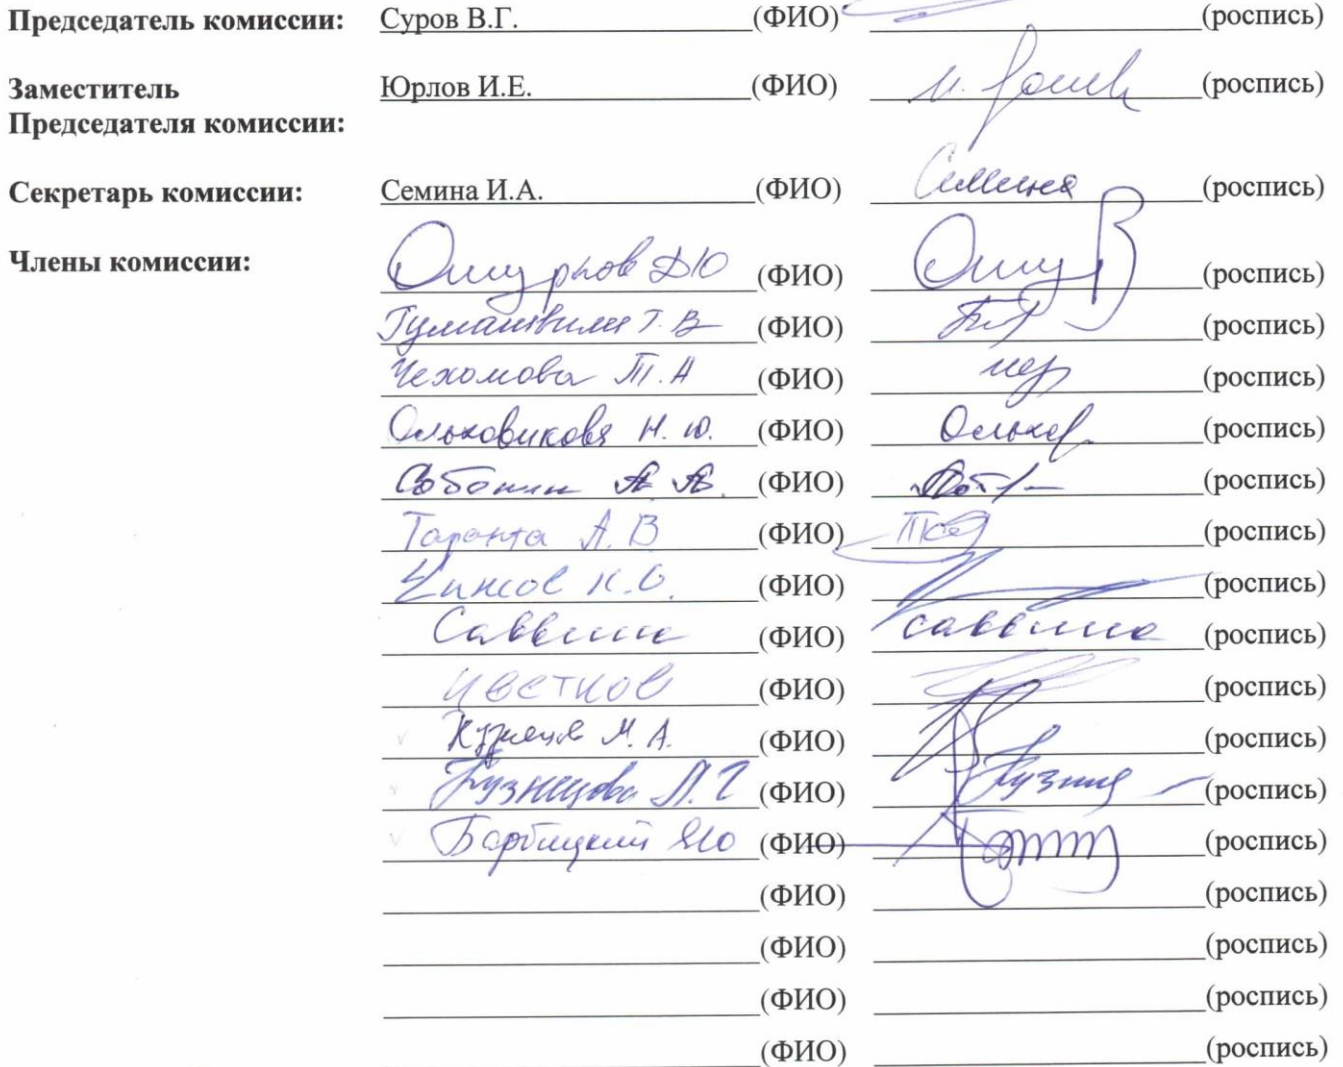 Председатель комиссии: Суров В.Г. (ФИО) (роспись)
Заместитель Юрлов И.Е. (ФИО) (роспись)
Председателя комиссии:
Секретарь комиссии: Семина И.А. (ФИО) Семина (роспись)
Члены комиссии: Ошурков ДЮ (ФИО) (роспись)
Гуманивили Т. В (ФИО) (роспись)
Чехомова Т.А (ФИО) (роспись)
Ольховикова Н. Ю. (ФИО) (роспись)
Собанин А А. (ФИО) (роспись)
Таранта А. В (ФИО) (роспись)
К.О. (ФИО) (роспись)
Саввина (ФИО) саввина (роспись)
Цветков (ФИО) (роспись)
Кузнецов М. А. (ФИО) (роспись)
Кузнецова Л. Г (ФИО) (роспись)
ЯЮ (ФИО) (роспись)
(ФИО) (роспись)
(ФИО) (роспись)
(ФИО) (роспись)
(ФИО) (роспись)